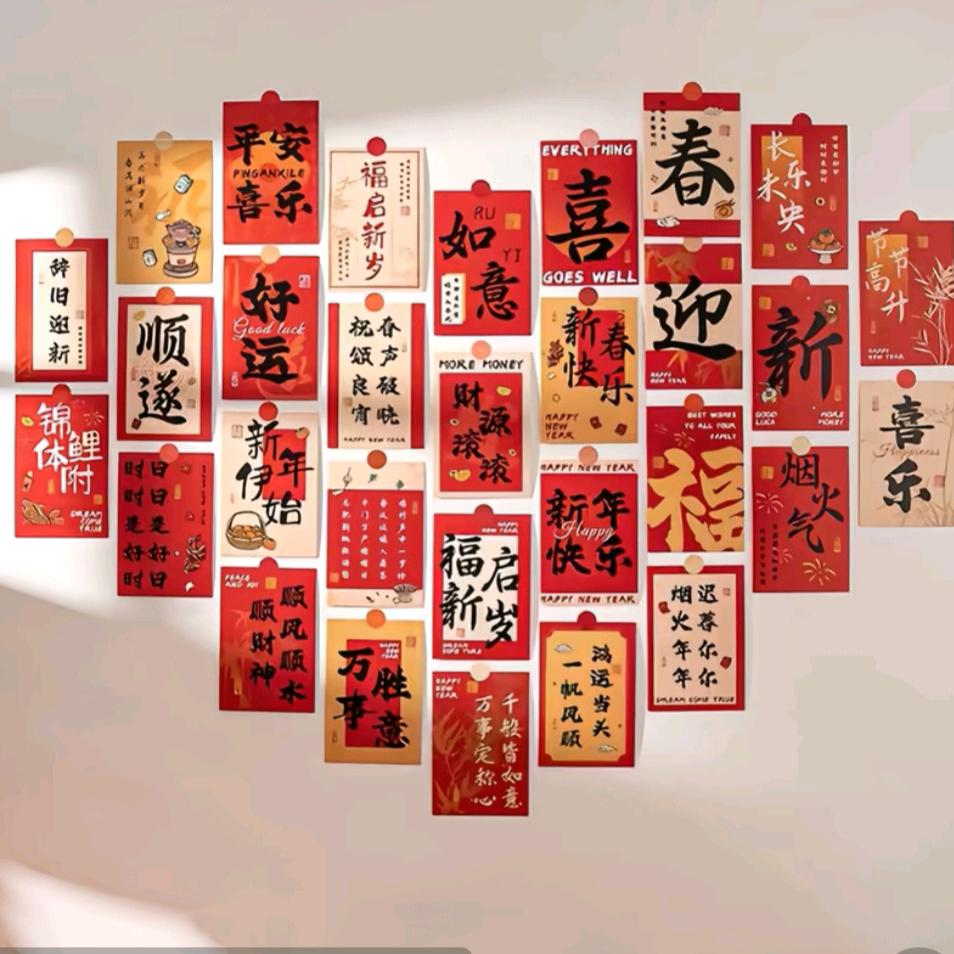 辞旧迎新
锦鲤
体附
DREAM
COME
TRUE
顺
遂
时时是好时
日日是好日
平安
PINGANXILE
喜乐
好
Good luck
运
新年
伊始
PEACE
AND JOY
顺风顺水
顺财神
福启新岁
春声破晓
祝颂良宵
HAPPY NEW YEAR
万事
胜意
HAPPY
NEW
YEAR
RU
如
YI
意
MORE MONEY
财源
滚滚
HAPPY
NEW YEAR
福启
新岁
DREAM
COME TRUE
HAPPY
NEW
YEAR
千般皆如意
万事定称心
EVERYTHING
喜
GOES WELL
新春
快乐
HAPPY
NEW
YEAR
HAPPY NEW YEAR
新年
Happy
快乐
HAPPY NEW YEAR
鸿运当头
一帆风顺
春
迎
HAPPY
NEW YEAR
BEST WISHES
TO ALL YOUR
FAMILY
福
迟暮尔尔
烟火年年
DREAM COME TRUE
长乐
未央
新
GOOD
LUCK
MORE
MONEY
烟火气
节节
高升
HAPPY
NEW YEAR
喜
Happiness
乐